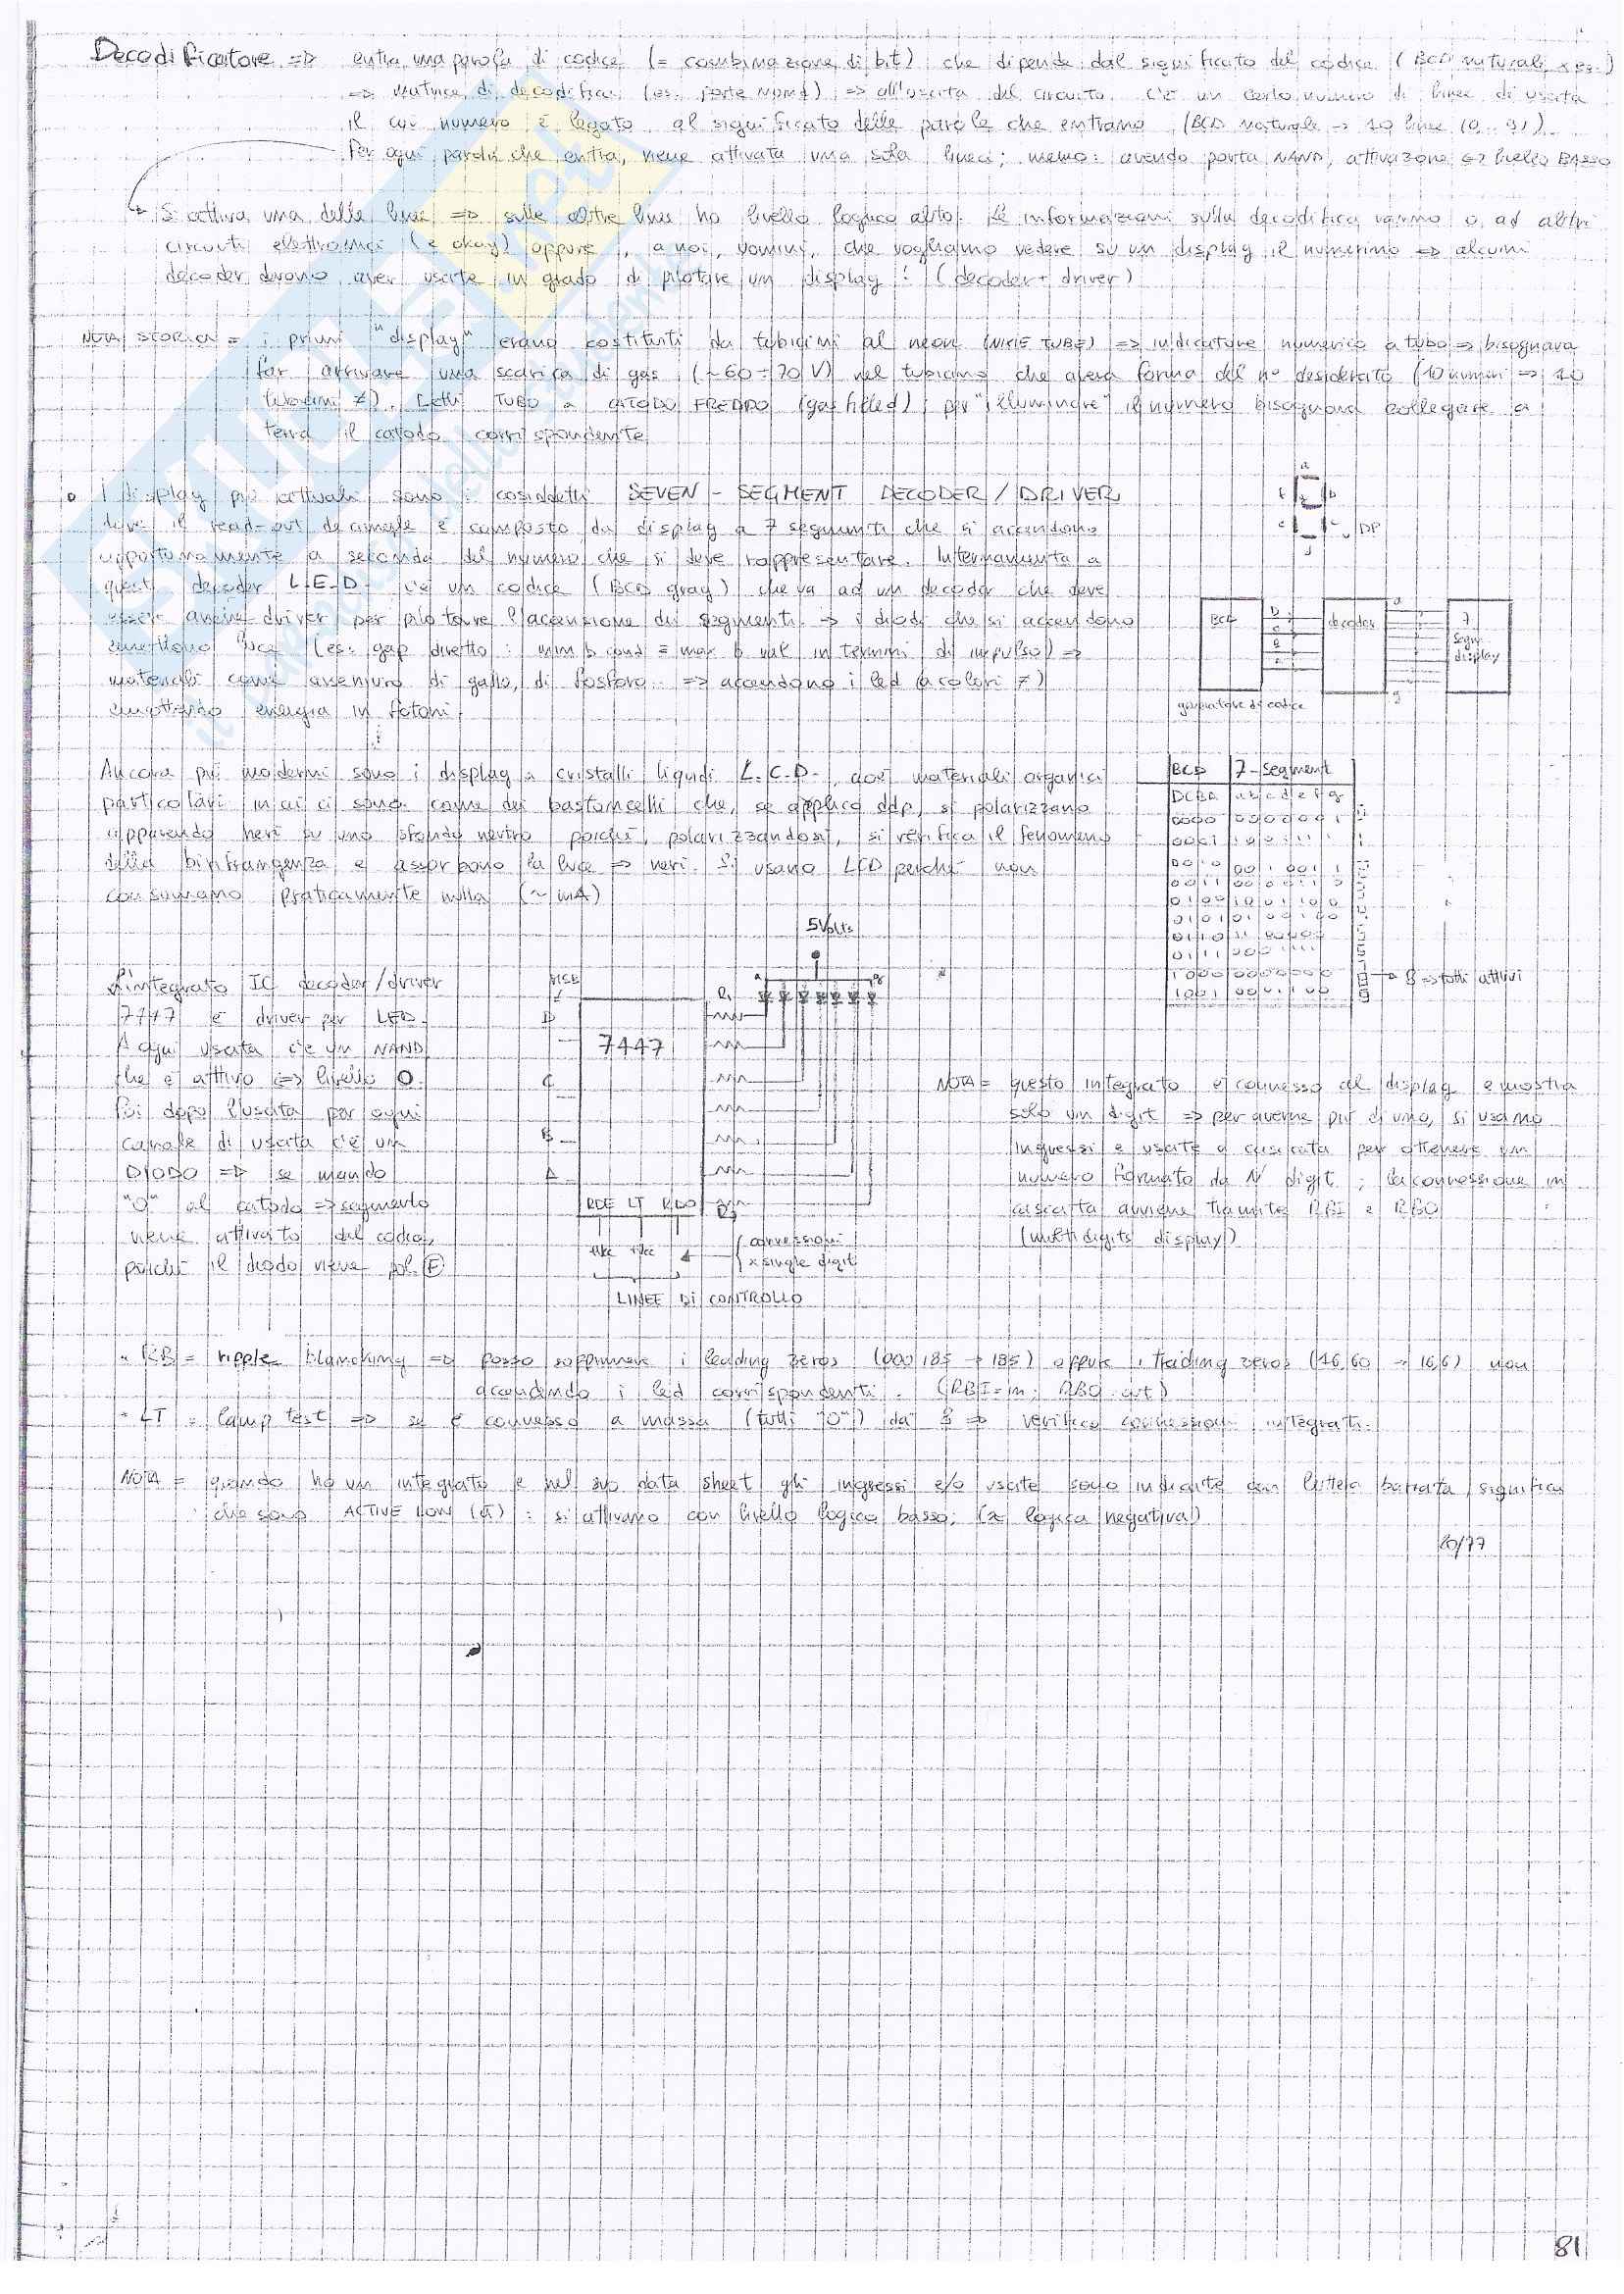 Decodificatore => entra una parola di codice (= combinazione di bit) che dipende dal significato del codice (BCD naturale, x es.)
=> matrice di decodifica (es. porte NAND) => all'uscita del circuito c'è un certo numero di linee di uscita
il cui numero è legato al significato delle parole che entrano (BCD naturale -> 10 linee (0..9)).
Per ogni parola che entra, viene attivata una sola linea; memo: avendo porta NAND, attivazione <=> livello BASSO
Si attiva una delle linee => sulle altre linee ho livello logico alto. Le informazioni sulla decodifica vanno o ad altri
circuiti elettronici (e okay) oppure, a noi, uomini, che vogliamo vedere su un display il numerino => alcuni
decoder devono aver uscite in grado di pilotare un display! (decoder + driver)
NOTA STORICA = i primi "display" erano costituiti da tubicini al neon (NIXIE TUBE) => indicatore numerico a tubo => bisognava
far arrivare una scarica di gas (~60÷70 V) nel tubicino che aveva forma del n° desiderato (10 numeri => 10
tubicini ≠). Detti TUBO a CATODO FREDDO (gas filled); per "illuminare" il numero bisognava collegare a
terra il catodo corrispondente
• I display più attuali sono i cosiddetti SEVEN-SEGMENT DECODER/DRIVER
dove il read-out decimale è composto da display a 7 segmenti che si accendono
opportunamente a seconda del numero che si deve rappresentare. Internamente a
questi decoder L.E.D. c'è un codice (BCD gray) che va ad un decoder che deve
essere anche driver per pilotare l'accensione dei segmenti -> i diodi che si accendono
emettono luce (es: gap diretto: min b cond = max b val in termini di impulso) =>
materiali come arseniuro di gallio, di fosforo.. => accendono i led (a colori ≠)
emettendo energia in fotoni.
a
f b
e c DP
d
BCD
D
C
B
A
decoder
a
g
7 segm. display
generatore di codice
Ancora più moderni sono i display a cristalli liquidi L.C.D., cioè materiali organici
particolari in cui ci sono come dei bastoncelli che, se applico ddp, si polarizzano
apparendo neri su uno sfondo neutro poiché, polarizzandosi, si verifica il fenomeno
della birifrangenza e assorbono la luce => neri. Si usano LCD perché non
consumano praticamente nulla (~mA)
BCD 7-segment
DCBA a b c d e f g
0000 0000001
0001 1001111
0010 0010010
0011 0000110
0100 1001100
0101 0100100
0110 1100000
0111 0001111
1000 0000000
1001 0001100
8 => tutti attivi
L'integrato IC decoder/driver
7447 è driver per LED.
A ogni uscita c'è un NAND
che è attivo <=> livello 0.
Poi dopo l'uscita per ogni
canale di uscita c'è un
DIODO => se mando
"0" al catodo => segmento
viene attivato dal codice,
poiché il diodo viene pol. F
5Volts
a g
MSB
D
C
B
A
7447
R1
R7
LT RBO
connessioni
x single digit
LINEE DI CONTROLLO
NOTA = questo integrato è connesso al display e mostra
solo un digit => per averne più di uno, si usano
ingressi e uscite a cascata per ottenere un
numero formato da N digit; la connessione in
cascata avviene tramite RBI e RBO
(multidigits display)
• RB = ripple blancking => posso sopprimere i leading zeros (000185 -> 185) oppure i trailing zeros (16,60 -> 16,6) non
accendendo i led corrispondenti. (RBI = in; RBO = out)
• LT = lamp test => se è connesso a massa (tutti "0") dà 8 => verifico connessioni integrati.
NOTA = quando ho un integrato e nel suo data sheet gli ingressi e/o uscite sono indicate con lettera barrata, significa
che sono ACTIVE LOW (ā): si attivano con livello logico basso; (≈ logica negativa)
80/77
81